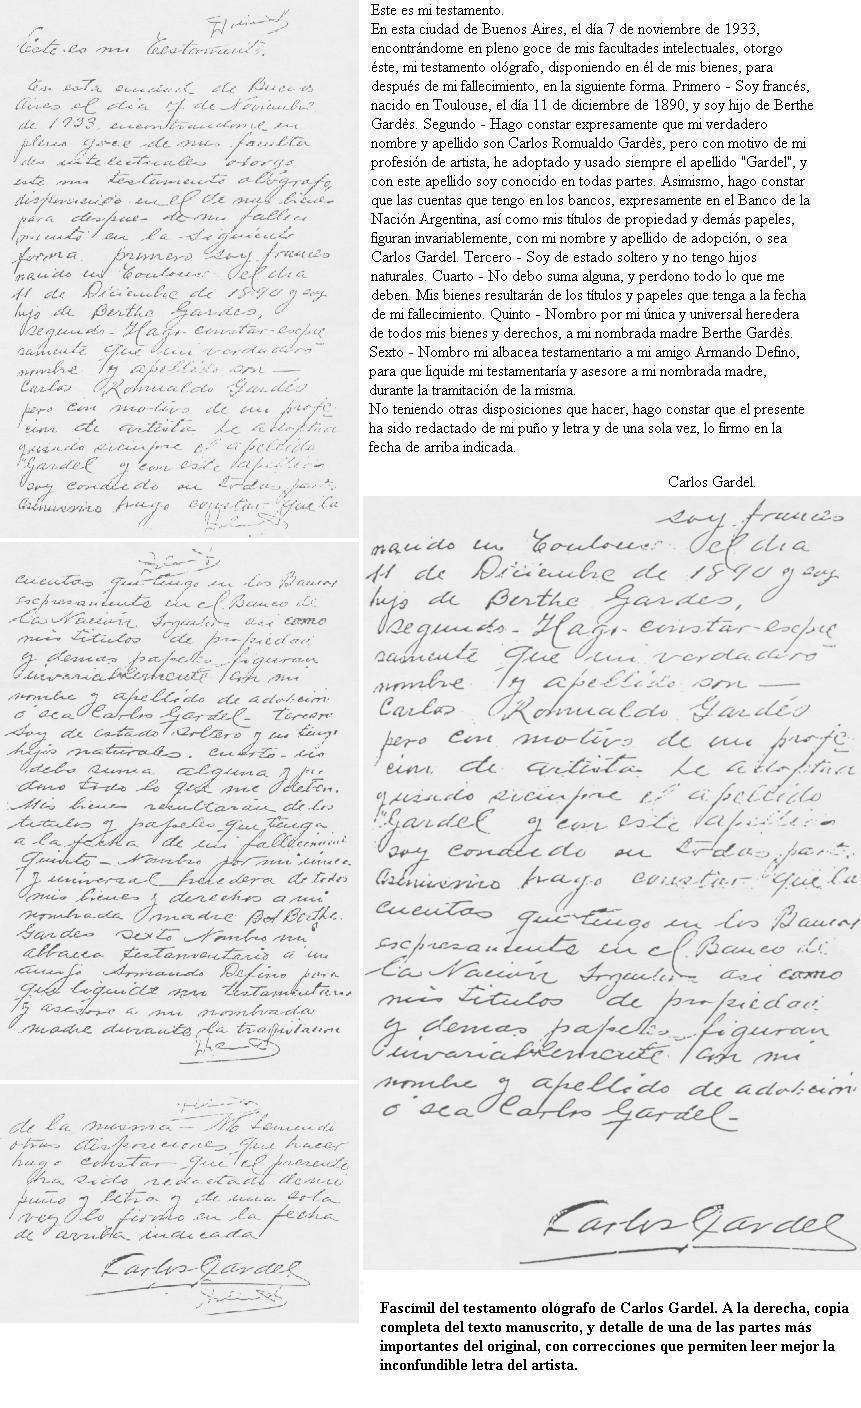 Este es mi Testamento.
en esta ciudad de Buenos
Aires el dia 7 de Noviembre
de 1933. encontrandome en
pleno goce de mis faculta
des intelectuales otorgo
este mi testamento ológrafo,
disponiendo en el de mis bienes
para despues de mi falleci
miento en la siguiente
forma. primero soy frances
nacido en Toulouse el dia
11 de Diciembre de 1890 y soy
hijo de Berthe Gardes,
segundo- Hago-constar-espre
samente que mi verdadero
nombre y apellido son —
Carlos Romualdo Gardés
pero con motivo de mi profe
cion de artista he adoptado
y usado siempre el apellido
"Gardel y con este apellido
soy conocido en todas part.
asimismo hago constar que la
cuentas que tengo en los Bancos
espresamente en el Banco de
la Nación Argentina asi como
mis titulos de propiedad
y demas papeles figuran
invariablemente con mi
nombre y apellido de adopcion
ó sea Carlos Gardel- tercero
soy de estado soltero y no tengo
hijos naturales. cuarto-no
debo suma alguna y per
dono todo lo que me deben.
Mis bienes resultarán de los
titulos y papeles que tenga
a la fecha de mi fallecimient
quinto- Nombro por mi unica
y universal heredera de todos
mis bienes y derechos a mi
nombrada madre Berthe
Gardes sexto Nombro mi
albacea testamentario a mi
amigo Armando Defino para
que liquide mi testamentaria
y asesore a mi nombrada
madre durante la tramitacion
de la misma- No teniendo
otras disposiciones que hacer
hago constar que el presente
ha sido redactado de mi
puño y letra y de una sola
vez lo firmo en la fecha
de arriba indicada
Carlos Gardel
Este es mi testamento.
En esta ciudad de Buenos Aires, el día 7 de noviembre de 1933,
encontrándome en pleno goce de mis facultades intelectuales, otorgo
éste, mi testamento ológrafo, disponiendo en él de mis bienes, para
después de mi fallecimiento, en la siguiente forma. Primero - Soy francés,
nacido en Toulouse, el día 11 de diciembre de 1890, y soy hijo de Berthe
Gardès. Segundo - Hago constar expresamente que mi verdadero
nombre y apellido son Carlos Romualdo Gardès, pero con motivo de mi
profesión de artista, he adoptado y usado siempre el apellido "Gardel", y
con este apellido soy conocido en todas partes. Asimismo, hago constar
que las cuentas que tengo en los bancos, expresamente en el Banco de la
Nación Argentina, así como mis títulos de propiedad y demás papeles,
figuran invariablemente, con mi nombre y apellido de adopción, o sea
Carlos Gardel. Tercero - Soy de estado soltero y no tengo hijos
naturales. Cuarto - No debo suma alguna, y perdono todo lo que me
deben. Mis bienes resultarán de los títulos y papeles que tenga a la fecha
de mi fallecimiento. Quinto - Nombro por mi única y universal heredera
de todos mis bienes y derechos, a mi nombrada madre Berthe Gardès.
Sexto - Nombro mi albacea testamentario a mi amigo Armando Defino,
para que liquide mi testamentaría y asesore a mi nombrada madre,
durante la tramitación de la misma.
No teniendo otras disposiciones que hacer, hago constar que el presente
ha sido redactado de mi puño y letra y de una sola vez, lo firmo en la
fecha de arriba indicada.
Carlos Gardel.
soy frances
nacido en Toulouse el dia
11 de Diciembre de 1890 y soy
hijo de Berthe Gardes,
segundo- Hago-constar-espre
samente que mi verdadero
nombre y apellido son —
Carlos Romualdo Gardés
pero con motivo de mi profe
cion de artista he adoptado
y usado siempre el apellido
"Gardel y con este apellido
soy conocido en todas part.
asimismo hago constar que la
cuentas que tengo en los Bancos
espresamente en el Banco de
la Nación Argentina asi como
mis titulos de propiedad
y demas papeles figuran
invariablemente con mi
nombre y apellido de adopcion
ó sea Carlos Gardel-
Carlos Gardel
Fascímil del testamento ológrafo de Carlos Gardel. A la derecha, copia
completa del texto manuscrito, y detalle de una de las partes más
importantes del original, con correcciones que permiten leer mejor la
inconfundible letra del artista.